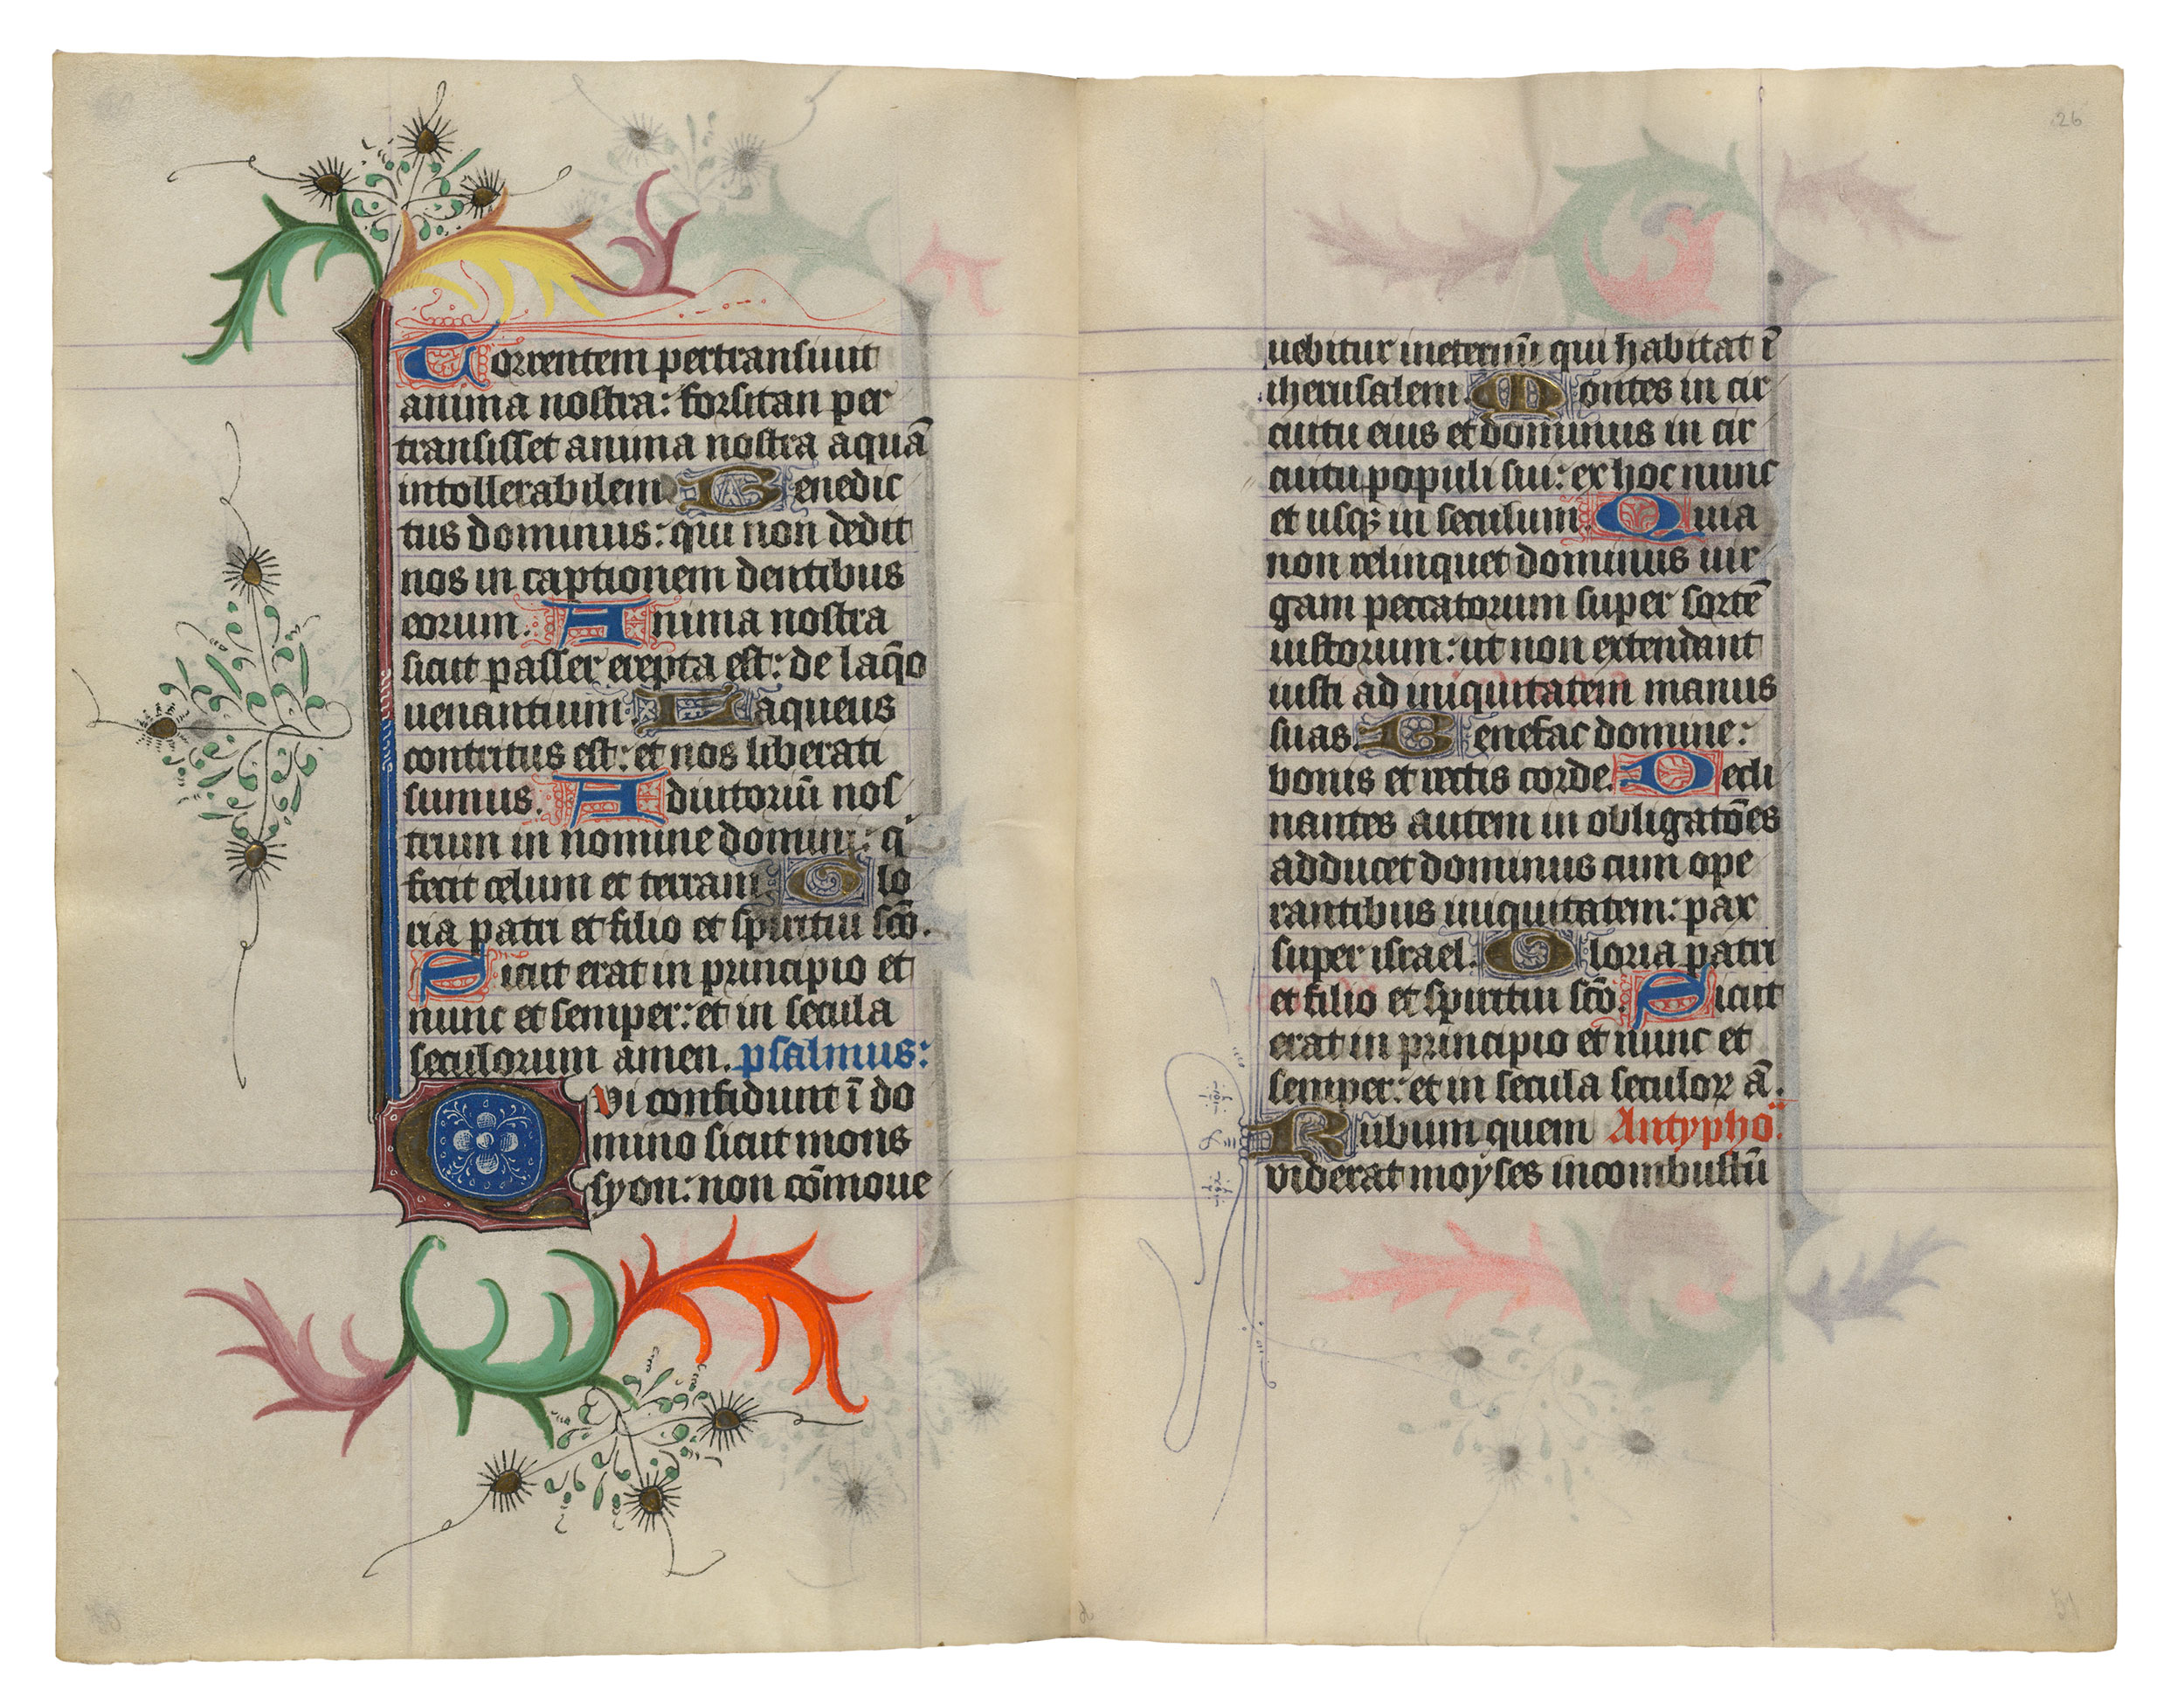 Torrentem pertransiuit
anima nostra: forsitan per
transisset anima nostra aquā
intollerabilem. Benedic
tus dominus: qui non dedit
nos in captionem dentibus
eorum. Anima nostra
sicut passer erepta est: de laq̄o
uenantium. Laqueus
contritus est: et nos liberati
sumus. Adiutoriū nos
trum in nomine domini: q
fecit celum et terram. Glo
ria patri et filio et spiritui scō.
Sicut erat in principio et
nunc et semper: et in secula
seculorum amen. psalmus:
Qvi confidunt ī do
mino sicut mons
syon: non cōmoue
26
uebitur ineternū qui habitat ī
iherusalem. Montes in cir
cuitu eius et dominus in cir
cuitu populi sui: ex hoc nunc
et usqꝫ in seculum. Quia
non relinquet dominus uir
gam peccatorum super sortē
iustorum: ut non extendant
iusti ad iniquitatem manus
suas. Benefac domine:
bonis et rectis corde. Decli
nantes autem in obligatōes
adducet dominus cum ope
rantibus iniquitatem: pax
super israel. Gloria patri
et filio et spiritui scō. Sicut
erat in principio et nunc et
semper: et in secula seculoꝝ ā.
Rubum quem Antypho
viderat moyses incombustū